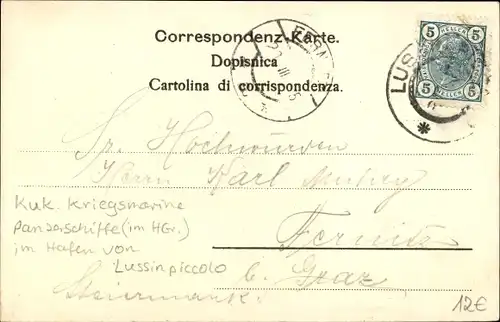 Correspondenz-Karte.
Dopisnica
Cartolina di corrispondenza.
5 5
HELLER
5 5
LUSS
Sr. Hochwürden
Herrn Karl
Kuk. Kriegsmarine
Panzerschiffe (im HGr.)
im Hafen von
Lussinpiccolo
Fernitz
b. Graz
Steiermark.
12€